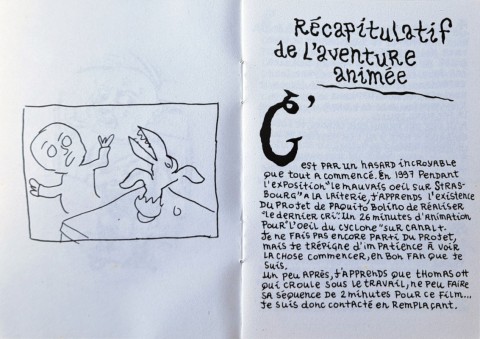 Récapitulatif
de l'aventure
animée
C'
est par un hasard incroyable
que tout a commencé. En 1997 pendant
l'exposition "le mauvais oeil sur Stras-
bourg" a la laiterie, j'apprends l'existence
du projet de Paquito Bolino de réaliser
"le dernier cri". Un 26 minutes d'animation
pour "l'oeil du cyclone" sur Canal+.
Je ne fais pas encore parti du projet,
mais je trépigne d'impatience à voir
la chose commencer, en bon fan que je
suis.
Un peu après, j'apprends que Thomas Ott
qui croule sous le travail, ne peu faire
sa séquence de 2 minutes pour ce film...
Je suis donc contacté en remplaçant.